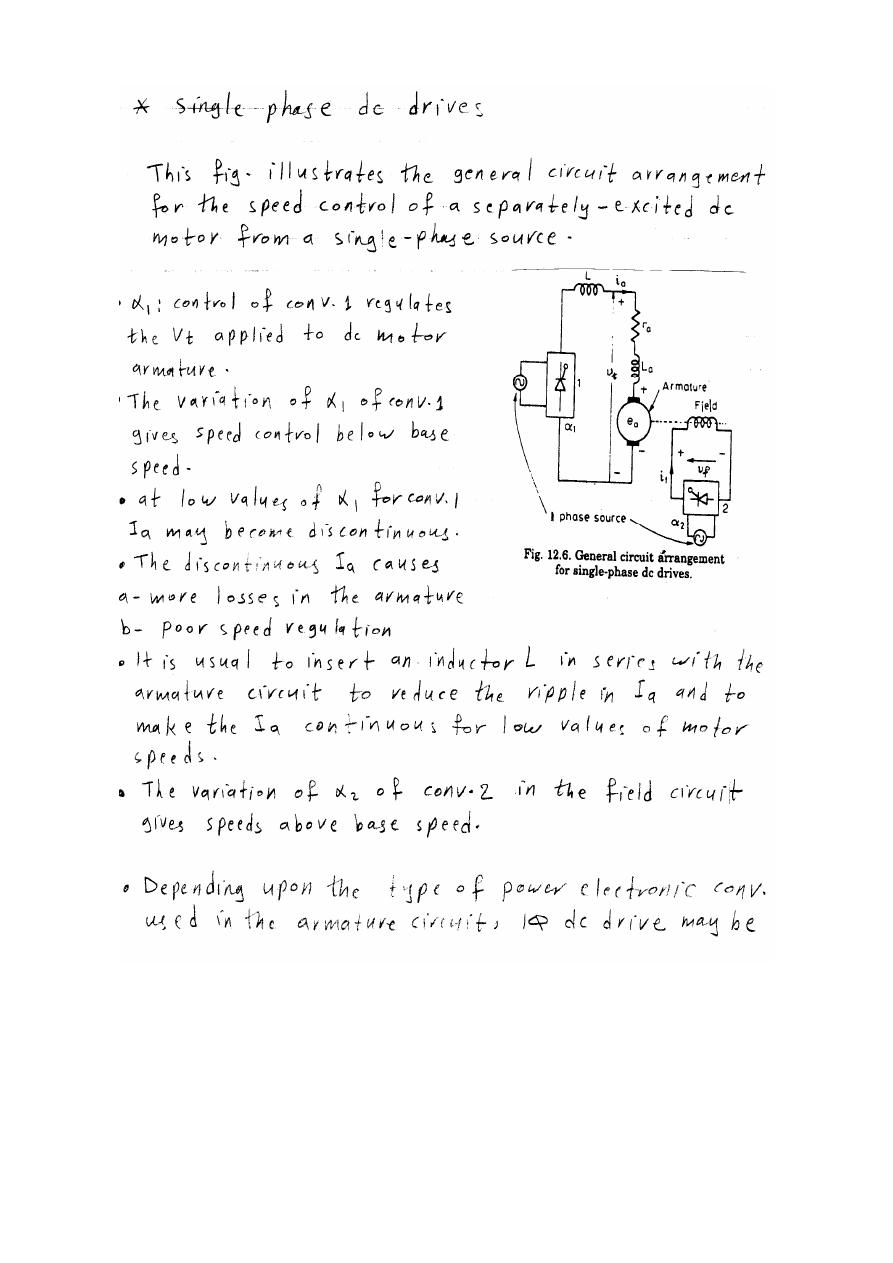 * Single-phase dc drives
This fig. illustrates the general circuit arrangement
for the speed control of a separately-excited dc
motor from a single-phase source.
• α1: control of conv.1 regulates
the Vt applied to dc motor
armature.
• The variation of α1 of conv.1
gives speed control below base
speed.
• at low values of α1 for conv.1
Ia may become discontinuous.
• The discontinuous Ia causes
a- more losses in the armature
b- poor speed regulation
L
ia
+
ra
La
vt
+
Armature
1
α1
ea
Field
-
+
-
vf
i1
-
2
α2
1 phase source
Fig. 12.6. General circuit arrangement
for single-phase dc drives.
• It is usual to insert an inductor L in series with the
armature circuit to reduce the ripple in Ia and to
make the Ia continuous for low values of motor
speeds.
• The variation of α2 of conv.2 in the field circuit
gives speeds above base speed.
• Depending upon the type of power electronic conv.
used in the armature circuit, 1Φ dc drive may be